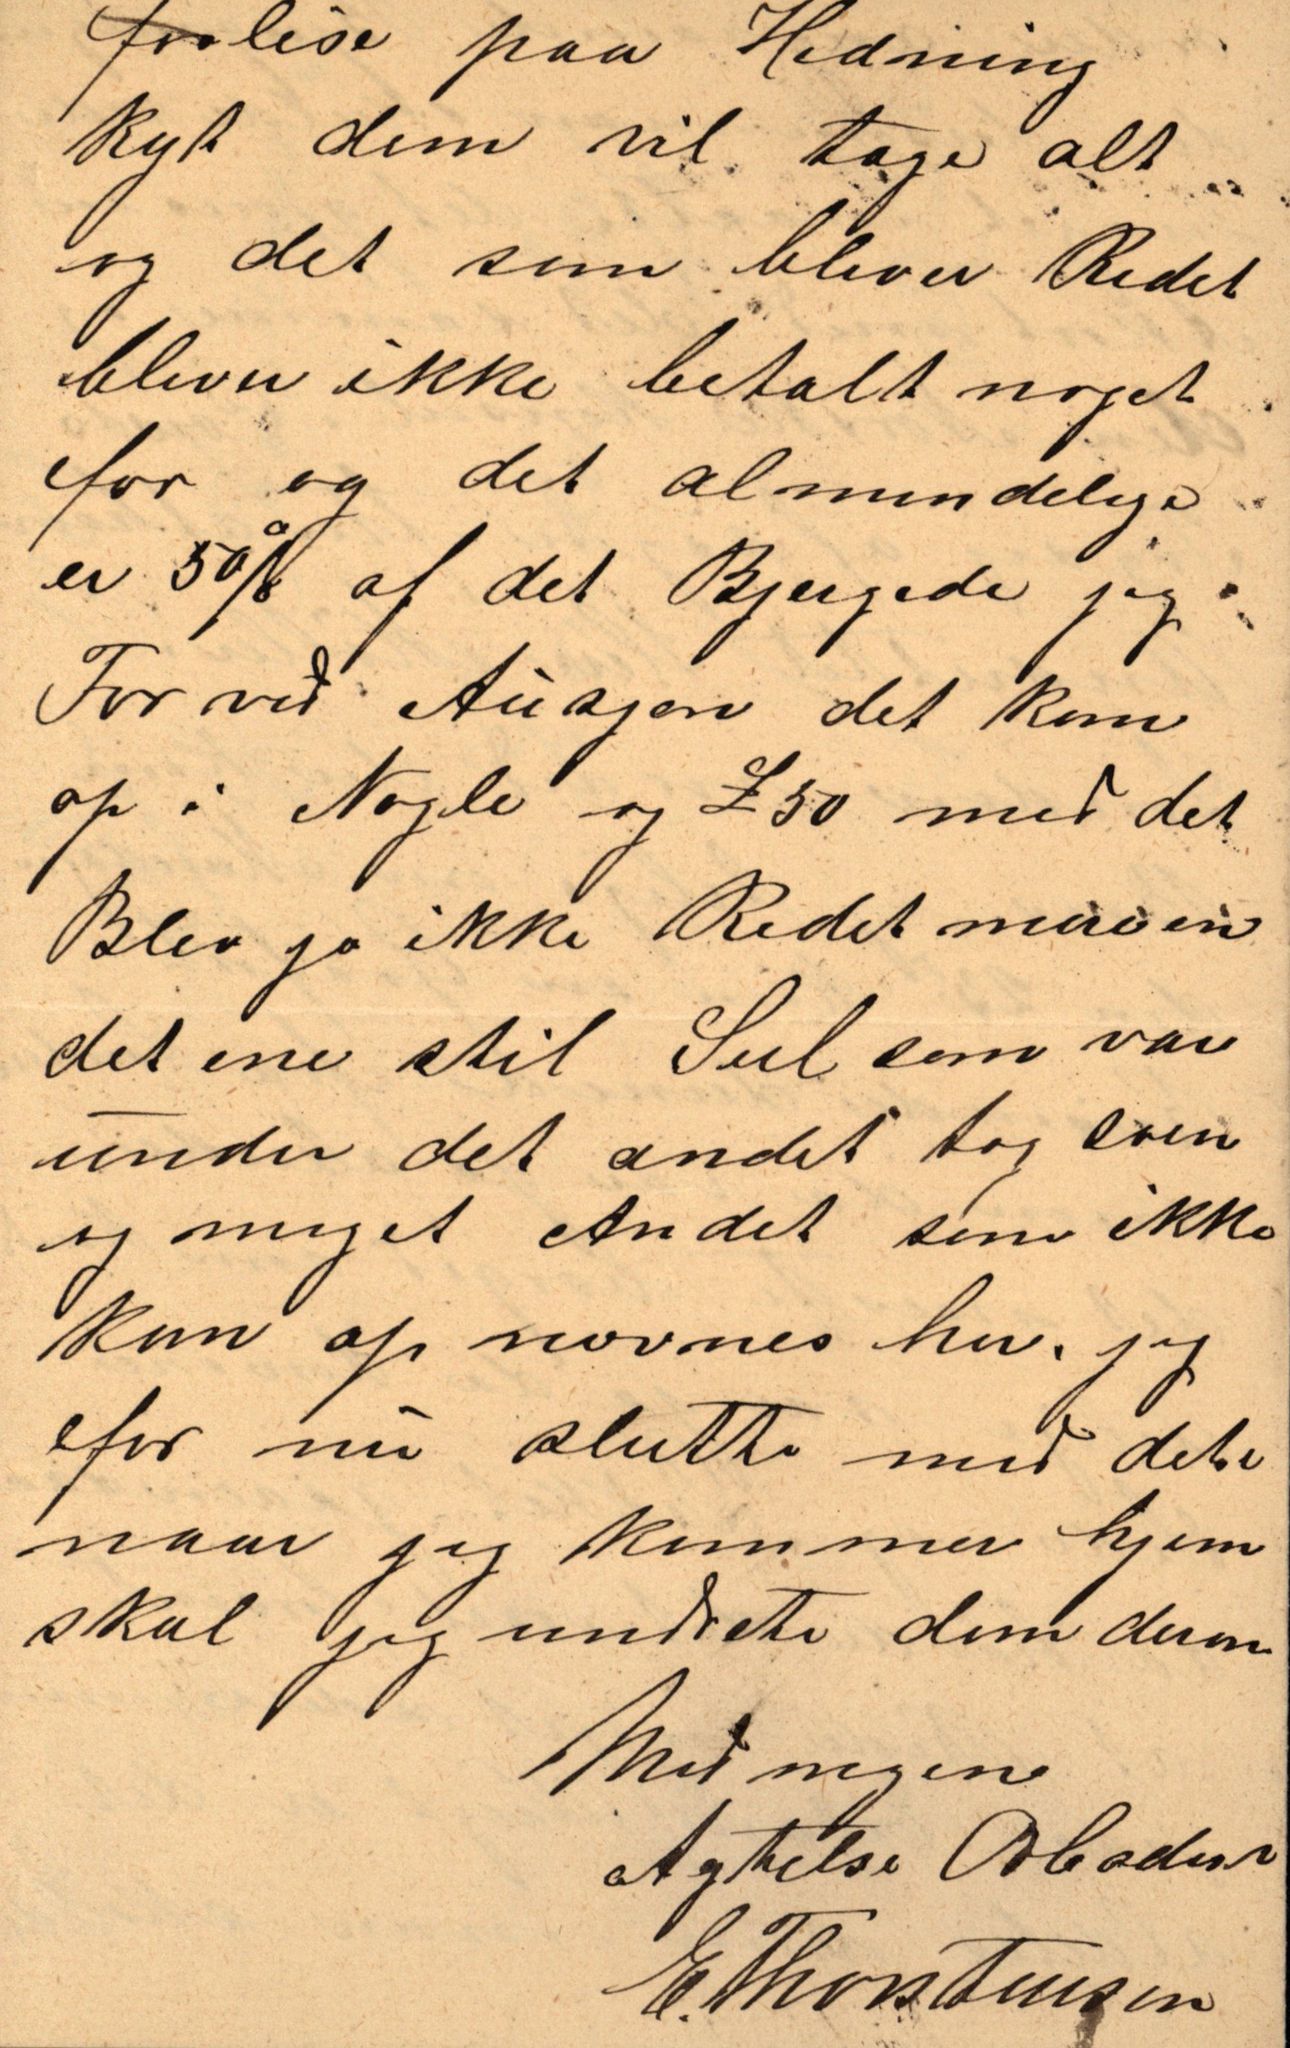 forlise paa Hedning
Kyst dem vil tage alt
og det som bliver Redet
bliver ikke betalt noget
for og det almindelige
er 50% af det Bjergede jeg
For ved Ausjon det kom
op i Nogle og £50 med det
Blev jo ikke Redet mere en
det ene stil Seil som var
under det andet tog even
og meget Andet som ikke
kan op nevnes her. jeg
for nu slutte med dete
naar jeg kommer hjem
skal jeg undrete dem derom
Med megen
Agtelse Arbødest
E. Thorstensen